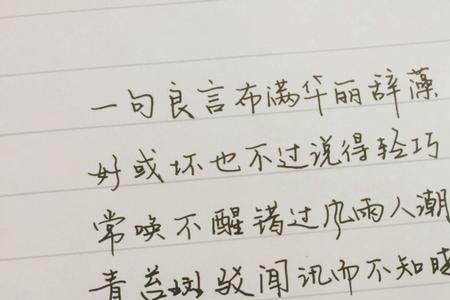 一句良言布满华丽辞藻
好或坏也不过说得轻巧
常唤不醒错过风雨人潮
青苔斑驳闻讯而不知晓